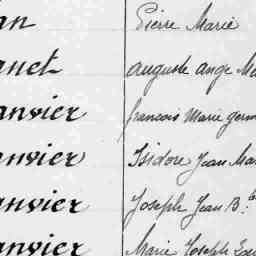 an Pierre Marie
anet auguste ange Ma
anvier francois Marie germ
anvier Isidore Jean Mar
anvier Joseph Jean B.te
anvier Marie Joseph Lou